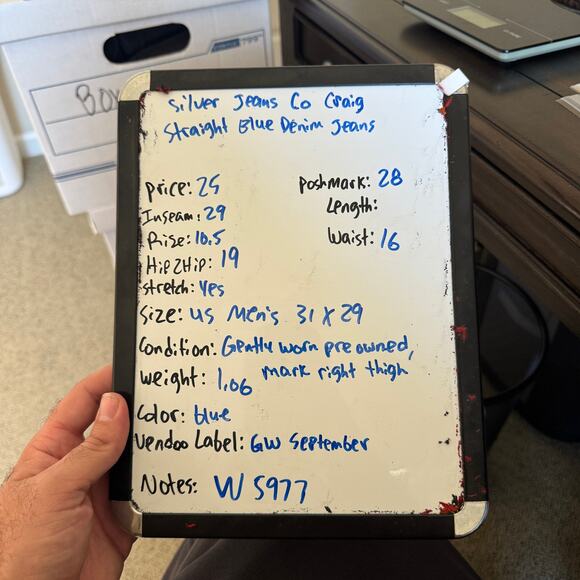 Silver Jeans Co Craig
Straight Blue Denim Jeans
Price: 25
Poshmark: 28
Inseam: 29
Length:
Rise: 10.5
Waist: 16
Hip2Hip: 19
Stretch: Yes
Size: US Men's 31 x 29
Condition: Gently worn pre owned,
mark right thigh
Weight: 1.06
Color: blue
Vendoo Label: GW September
Notes: W5977
BOX